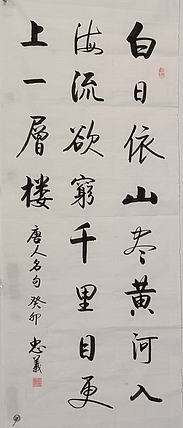 白日依山尽黄河入
海流欲窮千里目更
上一層楼
唐人名句癸卯忠義